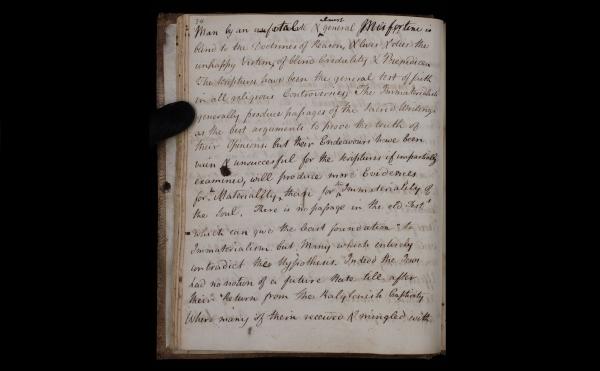 34
almost
Man by an unfortunate & general Misfortune is
blind to the Doctrines of Reason, & lives & dies the
unhappy Victim of blind Credulity & Prejudice.
The Scriptures have been the general test of faith
in all religious Controversies. The Immaterialists
generally produce passages of the Sacred Writings
as the best arguments to prove the truth of
their Opinions. but their Endeavours have been
vain & unsuccessful for the scriptures if impartially
examined, will produce more Evidences
for the Materiality, than for the Immateriality of
the Soul. There is no passage in the old Testt
which can give the least foundation to
Immaterialism but Many which entirely
contradict the Hypothesis. Indeed the Jews
had no notion of a future State till after
their Return from the Babylonish Captivity
Where many of them received & mingled with